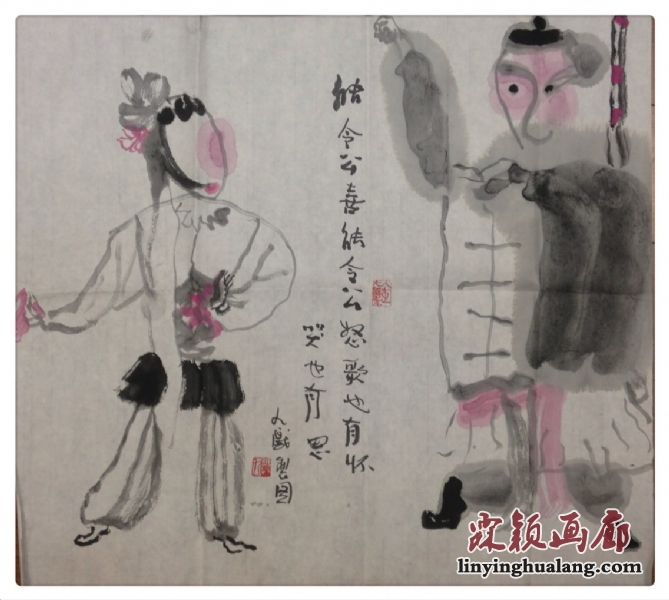 能令公喜能令公怒歌也有怀
哭也有思
霖颖画廊
linyinghualang.com